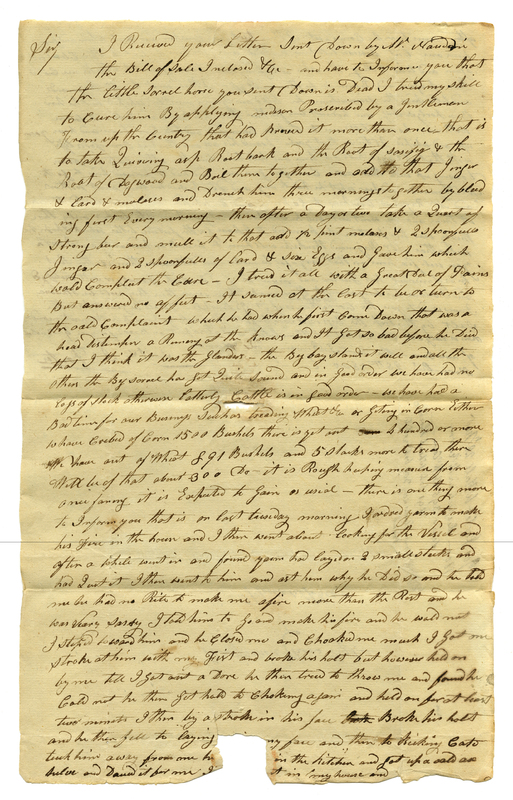 Sir I Received your Letter Sent Down by Mr.
the Bill of Sale Inclosed &c - and have to Inform you that
the little Sorrel horse you sent Down is Dead I tried my skill
to Cure him By applying Prescribed by a Gentleman
From up the Country that had Proved it more than once that is
to take Quivering asp Root bark and the Root of & the
Root of Dogwood and Boil them together and add to that Jinger
& Lard & molases and Drench him three mornings together by bleed
ing first Every morning - then after a day or two take a Quart of
Strong bear and mull it to that add 1/2 pint molases & 2 spoonfulls
Jinger and 2 spoonfulles of Lard & six Eggs and Gave him which
wold Compleat the Cure - I tried it all with a Great Deal of Pains
But answered no affect - It seamed at the Last to be or turn to
the oald Complaint which he had when he first Come Down that was a
head distemper a Running at the knows and It Got so bad before he Died
that I think it was the Glanders - the Big bay stands it well and all the
other the Big sorrel has Got Quite Sound and in Good order we have had no
loss of stock otherwise Cattle is in Good order - we have had a
Bad time for our Buisness Such as treading Wheat &c or Giting in Corn Either
we have Cribed of Corn 1500 Bushels there is yet out 4 hundred or more
We have out of Wheat 891 Bushels and 5 Stacks more to tread, there
Will be of that about 300 Do - it is Rough
once faning it is Expected to Gain as usial - there is one thing more
to Inform you that is on last tuesday morning I ordred yarm to make
his Fire in the house and I then went about looking for the Vessel and
after a While went in and found yarm had layd on 2 small sticks and
had Quit it I then went to him and ast him why he Did so and he told
me he had no Rite to make me a fire more than the Rest and he
was Veary Sasey I told him to Go and make his fire and he wold not
I steped toward him and he Closed me and Choaked me much I Got one
stroke at him with my Fist and broke his holt but however held on
by me till I Got out a Dore he then tried to throw me and found he
Cold not he then Got hold to Choking again and held on for at least
two minets I then by a stroke in his face Broke his holt
and he then fell to laying my face and then to kicking Cato
took him away from me he in the kitchen and got up a oald ax
helve and Dared it for me I in my house and